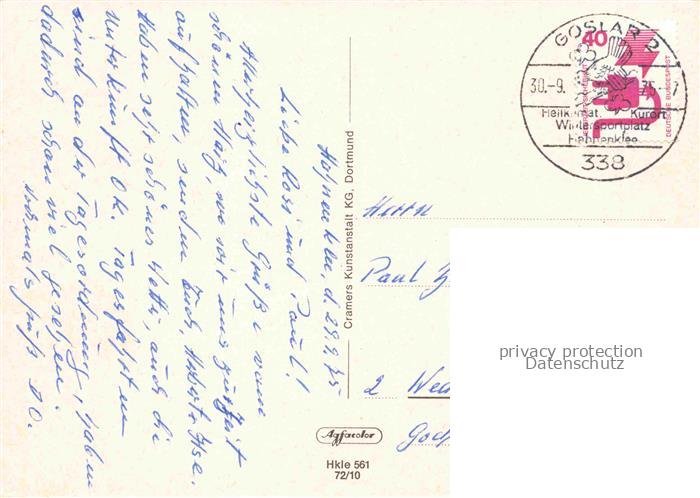 Hahnenklee, d. 29.9.75
Liebe Rosi und Paul!
Allerherzlichste Grüße vom
schönen Harz, wo wir uns zurzeit
aufhalten, senden Euch, Hubert + Ilse.
Haben sehr schönes Wetter, auch die
Unterkunft ok. Tagesfahrten
sind an der Tagesordnung, haben
dadurch schon viel gesehen.
Nochmals Gruß D.O.
Cramers Kunstanstalt KG, Dortmund
GOSLAR 2
30.-9. 75.-7
Heilklimat. Kurort
Wintersportplatz
Hahnenklee
338
40
DEUTSCHE BUNDESPOST
Herrn
Paul
2 Wed
Agfacolor
Hkle 561
72/10
privacy protection
Datenschutz